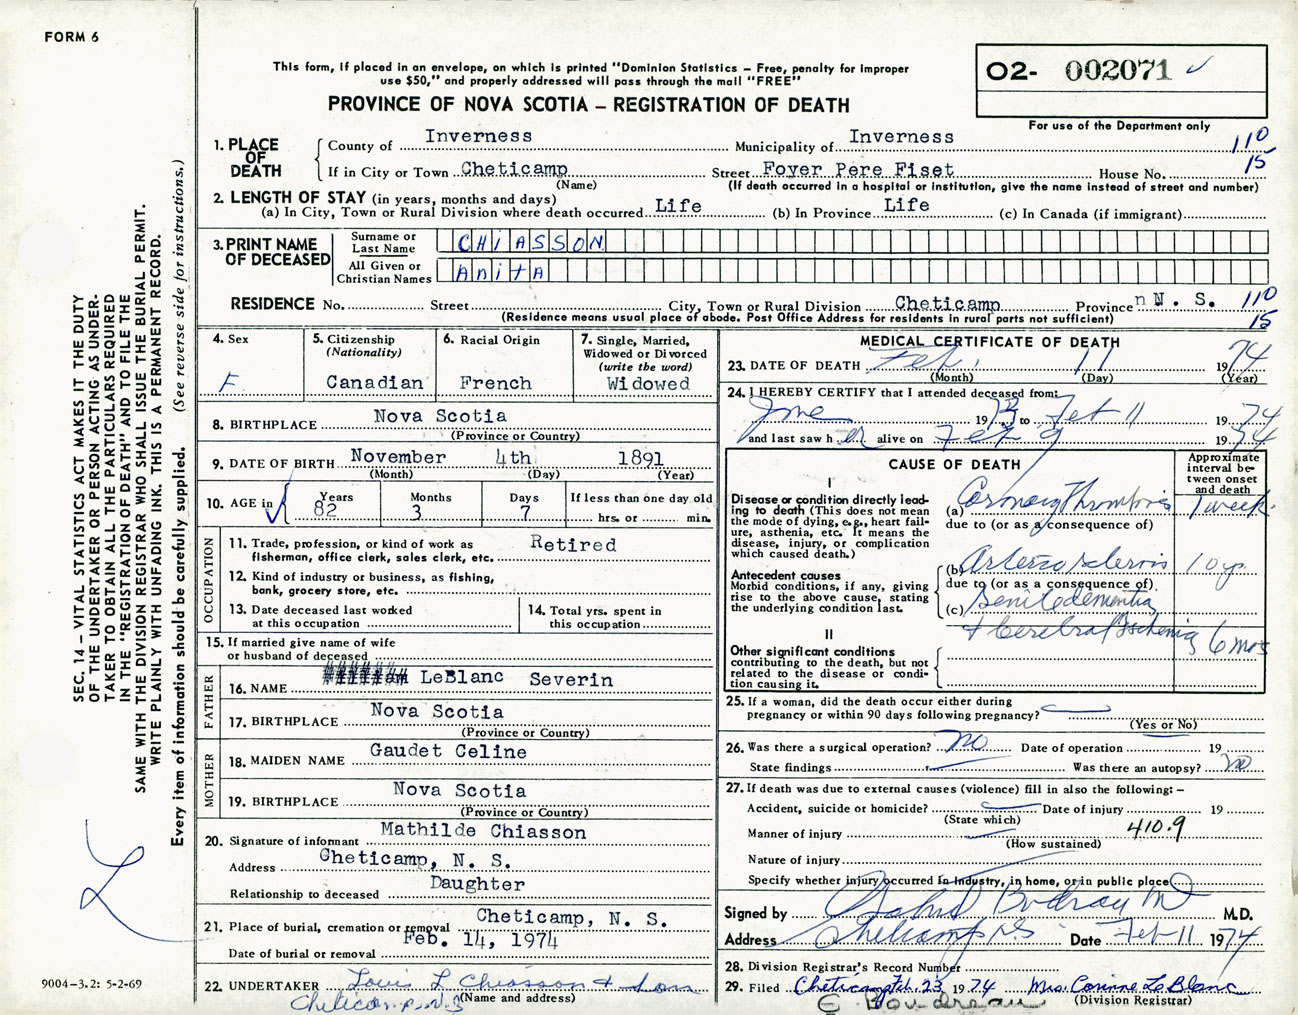 FORM 6
This form, if placed in an envelope, on which is printed "Dominion Statistics – Free, penalty for improper
use $50," and properly addressed will pass through the mail "FREE"
PROVINCE OF NOVA SCOTIA – REGISTRATION OF DEATH
O2- 002071
For use of the Department only
1. PLACE OF DEATH
County of Inverness Municipality of Inverness 110
If in City or Town Cheticamp Street Foyer Pere Fiset House No. 15
(Name) (If death occurred in a hospital or institution, give the name instead of street and number)
2. LENGTH OF STAY (in years, months and days)
(a) In City, Town or Rural Division where death occurred Life (b) In Province Life (c) In Canada (if immigrant)
3. PRINT NAME OF DECEASED
Surname or Last Name CHIASSON
All Given or Christian Names Anita
RESIDENCE No. Street City, Town or Rural Division Cheticamp Province N. S. 110
(Residence means usual place of abode. Post Office Address for residents in rural parts not sufficient) 15
4. Sex F
5. Citizenship (Nationality) Canadian
6. Racial Origin French
7. Single, Married, Widowed or Divorced (write the word) Widowed
8. BIRTHPLACE Nova Scotia
(Province or Country)
9. DATE OF BIRTH November 4th 1891
(Month) (Day) (Year)
10. AGE in Years 82 Months 3 Days 7 If less than one day old hrs. or min.
OCCUPATION
11. Trade, profession, or kind of work as Retired
fisherman, office clerk, sales clerk, etc.
12. Kind of industry or business, as fishing,
bank, grocery store, etc.
13. Date deceased last worked
at this occupation
14. Total yrs. spent in
this occupation
15. If married give name of wife
or husband of deceased
FATHER
16. NAME LeBlanc Severin
17. BIRTHPLACE Nova Scotia
(Province or Country)
MOTHER
18. MAIDEN NAME Gaudet Celine
19. BIRTHPLACE Nova Scotia
(Province or Country)
20. Signature of informant Mathilde Chiasson
Address Cheticamp, N. S.
Relationship to deceased Daughter
21. Place of burial, cremation or removal Cheticamp, N. S.
Date of burial or removal Feb. 14, 1974
22. UNDERTAKER Louis L Chiasson & Son
(Name and address) Cheticamp N.S
MEDICAL CERTIFICATE OF DEATH
23. DATE OF DEATH Feb. 11 1974
(Month) (Day) (Year)
24. I HEREBY CERTIFY that I attended deceased from:
June 1973 to Feb 11 1974
and last saw her alive on Feb 9 1974
CAUSE OF DEATH
Approximate interval between onset and death
I
Disease or condition directly lead-
ing to death (This does not mean
the mode of dying, e.g., heart fail-
ure, asthenia, etc. It means the
disease, injury, or complication
which caused death.)
(a) Coronary Thrombosis 1 week
due to (or as a consequence of)
Antecedent causes
Morbid conditions, if any, giving
rise to the above cause, stating
the underlying condition last.
(b) Arteriosclerosis 10 yr
due to (or as a consequence of)
(c) Senile dementia
& Cerebral Ischemia 6 mos
II
Other significant conditions
contributing to the death, but not
related to the disease or condi-
tion causing it.
25. If a woman, did the death occur either during
pregnancy or within 90 days following pregnancy?
(Yes or No)
26. Was there a surgical operation? no Date of operation 19
State findings Was there an autopsy? no
27. If death was due to external causes (violence) fill in also the following: –
Accident, suicide or homicide? Date of injury 19
(State which)
Manner of injury 410.9
(How sustained)
Nature of injury
Specify whether injury occurred in industry, in home, or in public place
Signed by M.D.
Address Cheticamp NS Date Feb 11 1974
28. Division Registrar's Record Number
29. Filed Cheticamp Feb. 23 1974 Mrs. Corinne LeBlanc
(Division Registrar)
E Boudreau
SEC. 14 – VITAL STATISTICS ACT MAKES IT THE DUTY
OF THE UNDERTAKER OR PERSON ACTING AS UNDER-
TAKER TO OBTAIN ALL THE PARTICULARS REQUIRED
IN THE "REGISTRATION OF DEATH" AND TO FILE THE
SAME WITH THE DIVISION REGISTRAR WHO SHALL ISSUE THE BURIAL PERMIT.
WRITE PLAINLY WITH UNFADING INK. THIS IS A PERMANENT RECORD.
Every item of information should be carefully supplied. (See reverse side for instructions.)
9004–3.2: 5-2-69